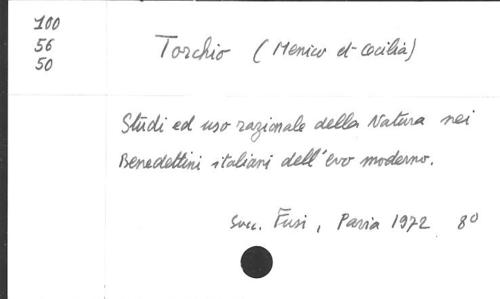 100
56
50
Torchio (Menico et Cecilia)
Studi ed uso razionale della Natura nei
Benedettini italiani dell'evo moderno.
Succ. Fusi, Pavia 1972 8º